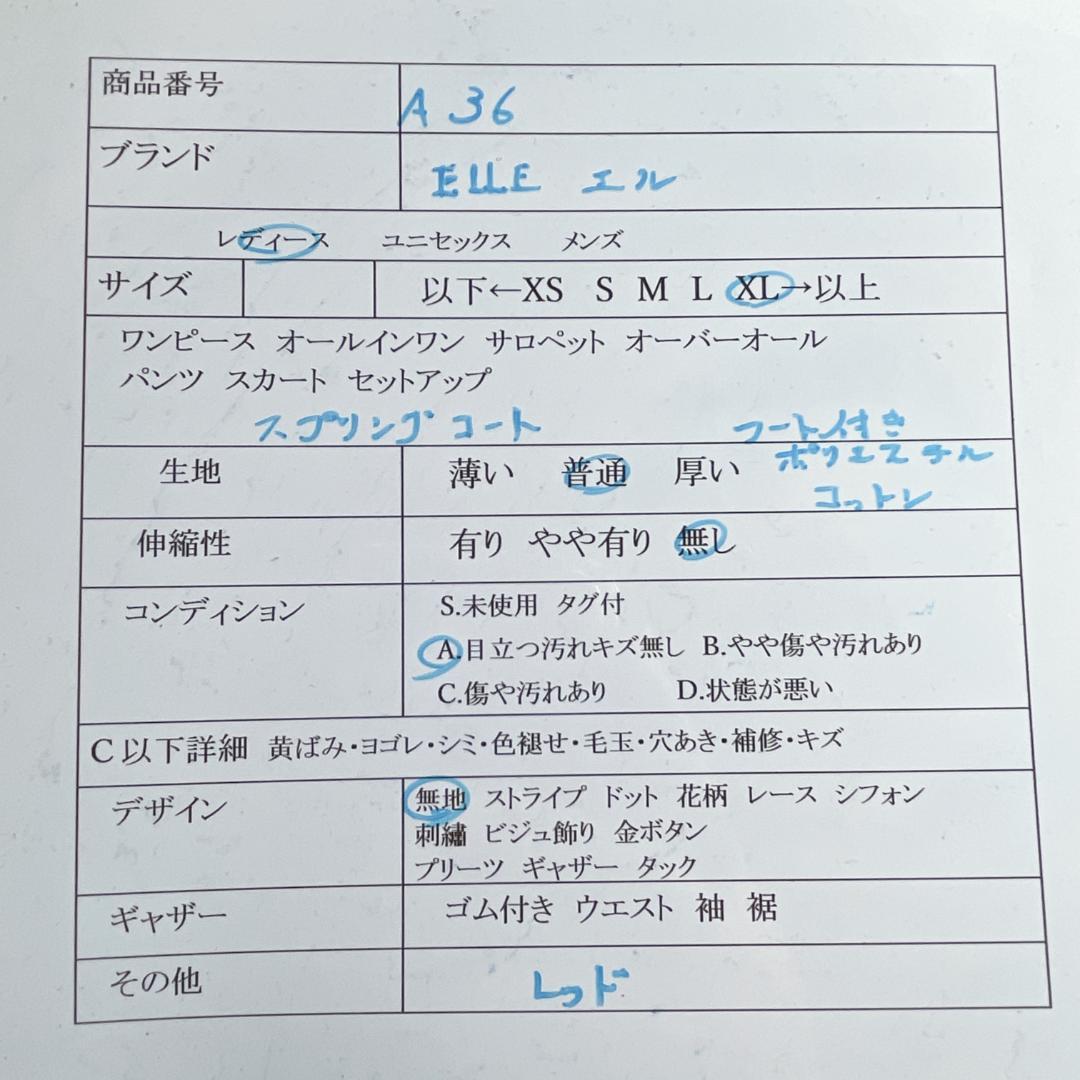 商品番号 A 36
ブランド ELLE エル
レディース ユニセックス メンズ
サイズ 以下←XS S M L XL→以上
ワンピース オールインワン サロペット オーバーオール
パンツ スカート セットアップ
スプリングコート フート付き
生地 薄い 普通 厚い ポリエステル
コットン
伸縮性 有り やや有り 無し
コンディション S.未使用 タグ付
A.目立つ汚れキズ無し B.やや傷や汚れあり
C.傷や汚れあり D.状態が悪い
C以下詳細 黄ばみ・ヨゴレ・シミ・色褪せ・毛玉・穴あき・補修・キズ
デザイン 無地 ストライプ ドット 花柄 レース シフォン
刺繍 ビジュ飾り 金ボタン
プリーツ ギャザー タック
ギャザー ゴム付き ウエスト 袖 裾
その他 レッド